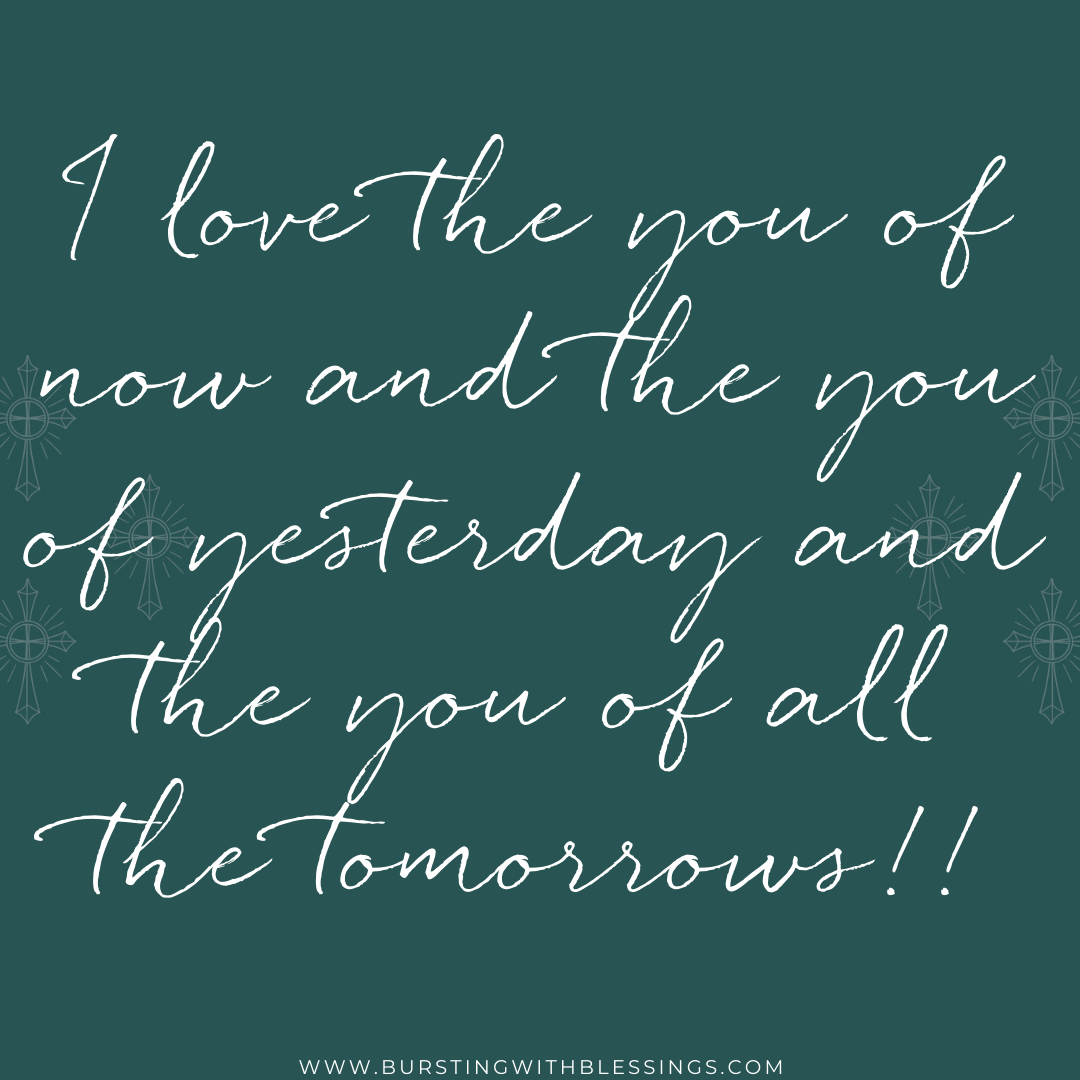 I love the you of
now and the you
of yesterday and
the you of all
the tomorrows!!
WWW.BURSTINGWITHBLESSINGS.COM